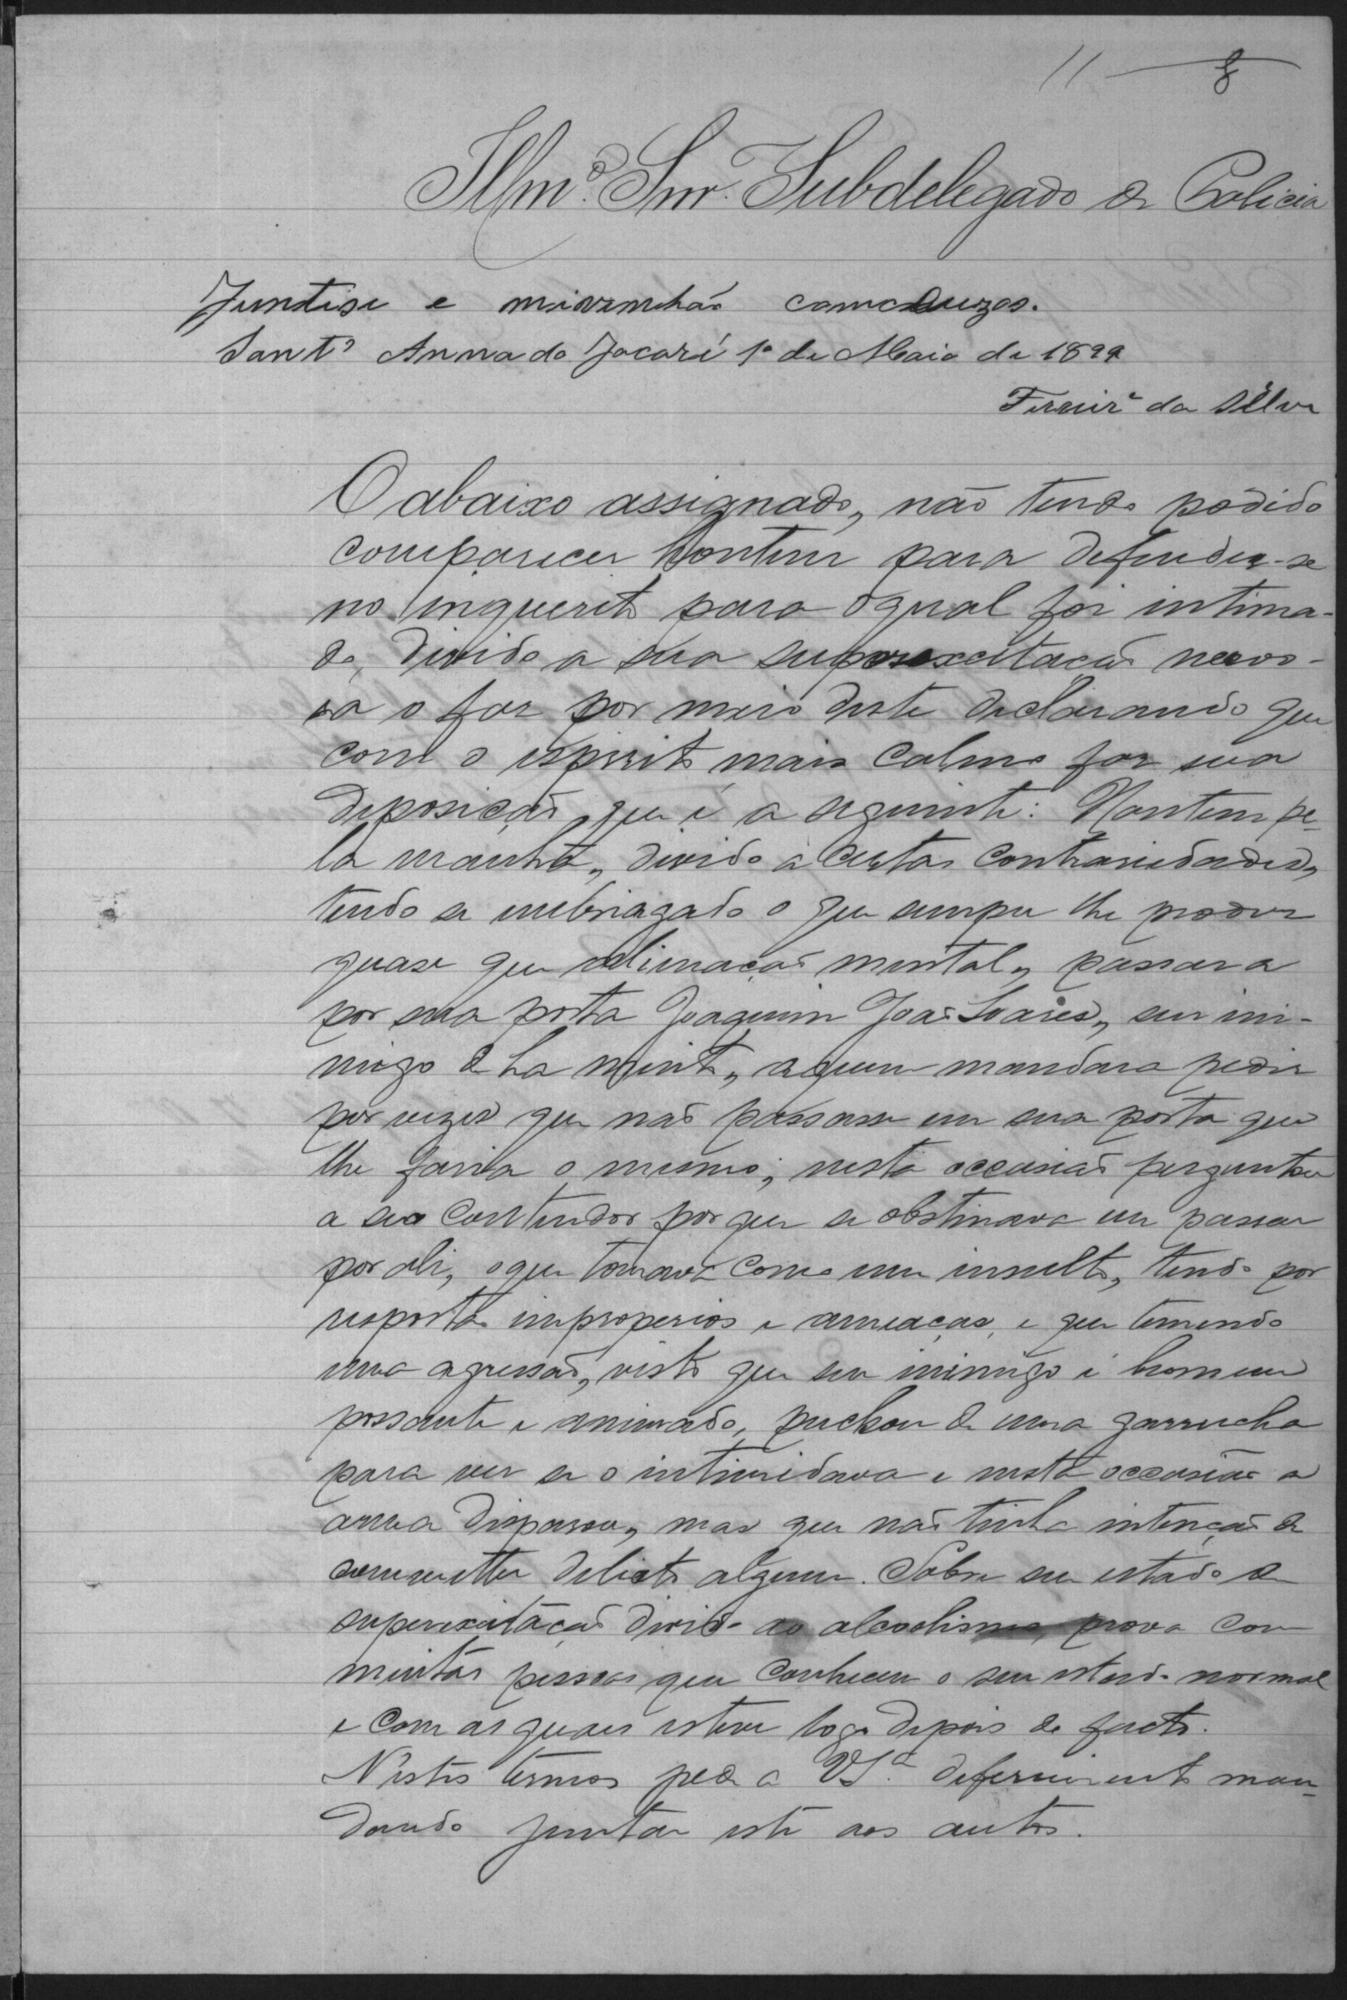 11 8
Illmo. Snr. Subdelegado de Policia
Juntise e mivenhão conclusos.
Santa Anna do Jacaré 1º de Maio de 1899
Ferreira da Silva
O abaixo assignado, não tendo podido
comparecer hontem para defender-se
no inquerito para o qual foi intima-
do, divido a sua superexcitação nervo-
sa o faz por meio deste declarando que
com o espirito mais calmo faz sua
deposição que é a seguinte: Hontem pe-
la manhã, divido a certas contrariedades,
tendo se embriagado o que sempre lhe produz
quase que alienação mental, passara
por sua porta Joaquim João Soares, seu ini-
migo de ha muito, a quem mandara pedir
por vezes que não passasse em sua porta que
lhe faria o mesmo; nesta occasião perguntou
a seu contendor por que se obstinava em passar
por ali, o que tomava como um insulto, tendo por
resposta improperios e ameaças, e que temendo
uma agressão, visto que seu inimigo é homem
possante e animado, puchou de uma garrucha
para ver se o intimidava e nesta occasião a
arma disparou, mas que não tinha intenção de
commetter delicto algum. Sobre seu estado de
superexcitação divido ao alcoolismo, prova com
muitas pessoas que conhecem o seu estado normal
e com as quaes esteve logo depois do facto.
Nestes termos pede a VSª. deferimento man-
dando juntar este aos autos.